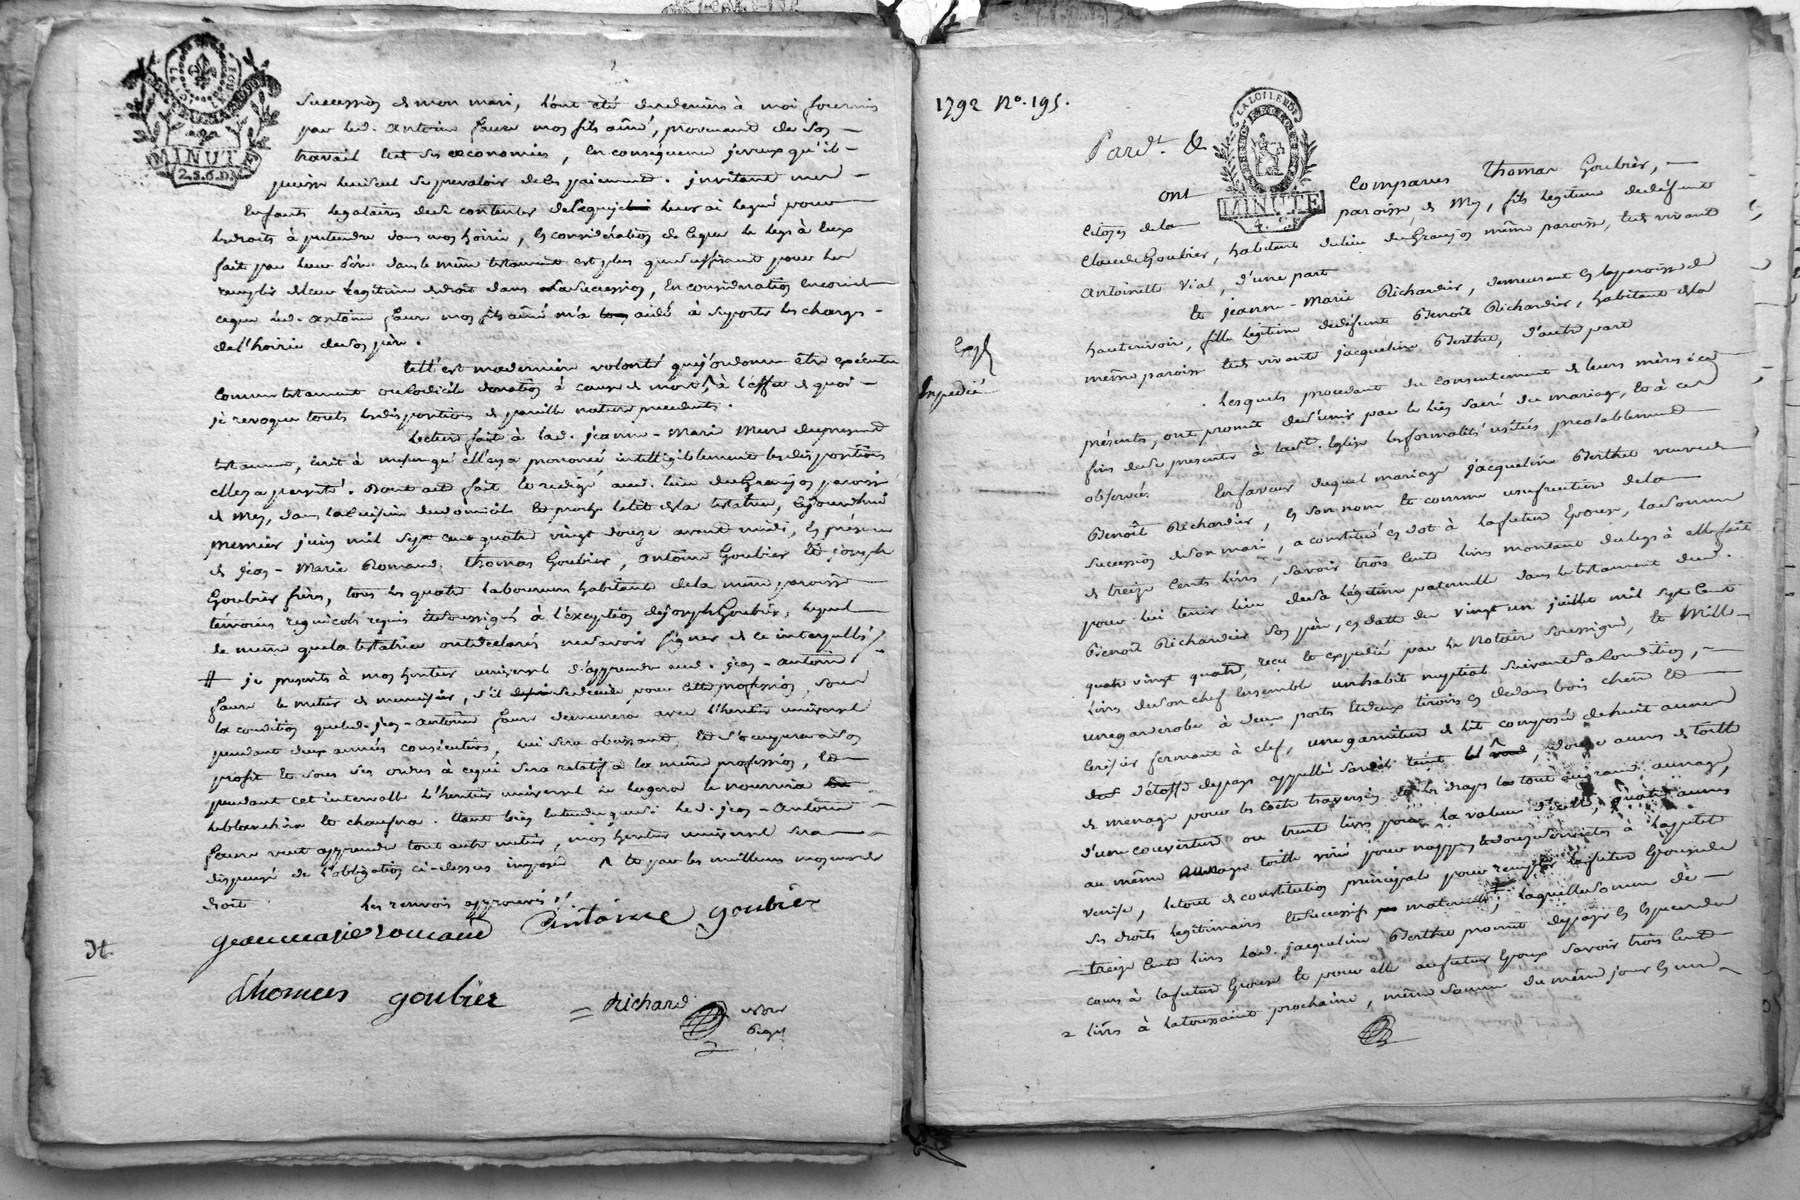 LA LOI ET LE ROI
MINUTE
2.S.6.D.
succession de mon mari, l'ont été des deniers à moi fournis
par led. antoine faure mon fils ainé, provenant de son
travail et de ses oeconomies, en conséquence je veux qu'il
puisse lui seul se prevaloir de ces paiements. invitant mes
enfants legataires de se contenter de ce que je leur ai legué pour
les droits à pretendre dans mon hoirie, en considération de ce que le legs à eux
fait par leur père dans le même testament est plus que suffisant pour les
remplir de leur legitime de droit dans sa succession, en considération encore de
ce que led. antoine faure mon fils ainé m'a aidé à suporter les charges
de l'hoirie de son père.
tell'est ma dernière volonté que j'ordonne être exécutée
comme testament ou codicile donation à cause de mort, à l'effet de quoi
je revoque toutes les dispositions de pareille nature precedentes.
Lecture faite à lad. jeanne-Marie du present
testament, écrit à mesure qu'elle en a prononcé intelligiblement les dispositions
elle y a persisté. Dont acte fait et redigé aud. lieu du Granjon paroisse
de Mey, dans la cuisine du domicile et proche le lit de la testatrice, cejourd'hui
premier juin mil sept cent quatre vingt douze avant midi, en présence
de jean-Marie Romand, thomas Goubier, antoine Goubier et joseph
Goubier frères, tous les quatre laboureurs habitants de la même paroisse
temoins requis et soussignés à l'exception de joseph Goubier, lequel
de même que la testatrice ont declarés ne savoir signer de ce interpellés
# je prescris à mon heritier universel d'apprendre aud. jean-antoine
faure le metier de menuisier, s'il se decide pour cette profession, sous
la condition que led. jean-antoine faure demeurera avec l'heritier universel
pendant deux années consécutives, lui sera obeissant, et s'occupera à son
profit et sous ses ordres à ce qui sera relatif à la même profession, et
pendant cet intervalle l'heritier universel le logera le nourrira
le blanchira et chaufera. étant bien entendu que si led. jean-antoine
faure veut apprendre tout autre metier, mon heritier universel sera
dispensé de l'obligation ci-dessus imposée et par les meilleurs moyens de
droit les renvois approuvés
jean marie romand antoine goubier
thomas goubier
Richard
1792 No. 195.
Pard.t &
LA LOI ET LE ROI
MINUTE
ont comparus thomas Goubier,
citoyen de la paroisse de Mey, fils legitime de défunt
Claude Goubier, habitant du lieu du Granjon même paroisse, et de vivante
antoinette Vial, d'une part
Et jeanne-Marie Richardier, demeurant en la paroisse de
hauterivoir, fille légitime de défunt Benoît Richardier, habitant de la
même paroisse et de vivante jacqueline Berthe, d'autre part
Lesquels procedant du consentement de leurs mères ici
présentes, ont promit de s'unir par le lien sacré du mariage, et à ces
fins de se presenter à la ste. Eglise les formalités usitées prealablement
observées En faveur duquel mariage jacqueline Berthe veuve de
Benoît Richardier, en son nom et comme usufruitière de la
succession de son mari, a constitué en dot à la future épouse, la somme
de treize cents livres, savoir trois cents livres montant du legs à elle fait
pour lui tenir lieu de sa légitime paternelle dans le testament dud.
Benoît Richardier son père, en datte du vingt un juillet mil sept cent
quatre vingt quatre, reçu et expédié par le Notaire soussigné, et Mille
livres de son chef ensemble un habit nuptial suivant sa condition,
une garderobe à deux portes et deux tiroirs en dedans bois chêne et
cerisier fermant à clef, une garniture de lit composée de huit aunes
d'étoffe de pays appellée sardis, douze aunes de toille
de menage pour les traversin les draps le tout au grand aunage,
d'une couverture ou trente livres pour la valeur d'icelle, quatre aunes
au même aunage toille virié pour nappes et douze serviettes à la petite
venise, le tout de constitution principale pour remplir la future épouse de
ses droits legitimaires et successifs maternels; laquelle somme de
treize cents livres lad. jacqueline Berthe promet de payer en especes de
cours à la future épouse et pour elle au futur époux savoir trois cents
livres à la toussaint prochaine, même somme du même jour en une